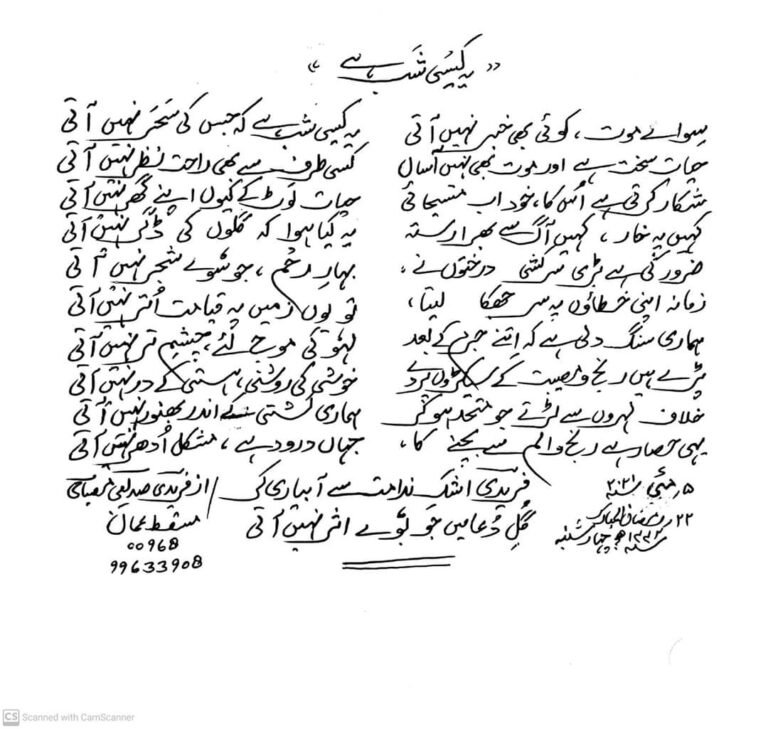 " یہ کیسی شَب ہے "
سوائے موت ، کوئی بھی خبر نہیں آتی یہ کیسی شب ہے کہ جس کی سَحَر نہیں آتی
حیات سخت ہے اور موت بھی نہیں آساں کسی طرف سے بھی راحت نظر نہیں آتی
شکار کرتی ہے اُس کا، خود اب مسیحائی حیات لَوٹ کے کیوں اپنے گھر نہیں آتی
کہیں پہ خار ، کہیں آگ سے بھرا رستہ یہ کیا ہوا کہ گلوں کی ڈگر نہیں آتی
ضرور کی ہے بڑی سرکشی درختوں نے ، بہارِ رحم ، جو سُوئے شجر نہیں آتی
زمانہ اپنی خطاؤں پہ سر جھکا لیتا ، تو یوں زمیں پہ قیامت اُتر نہیں آتی
ہماری سنگ دلی ہے کہ اتنے جرم کے بعد لہو کی موج لئے، چشمِ تر نہیں آتی
پڑے ہیں رنج و مصیبت کے سیکڑوں پردے خوشی کی روشنی، ہستی کے در نہیں آتی
خلاف لہروں سے لڑتے جو متحد ہو کر ہماری کشتی کے اندر بھنور نہیں آتی
یہی حصار ہے رنج و الم سے بچنے کا، جہاں درود ہے ، مشکل اُدھر نہیں آتی
فریدی اشک ندامت سے آبیاری کی
گُلِ دُعا میں جو بُوئے اثر نہیں آتی
۵؍مئی ۲۰۲۱
۲۲ رمضان المبارک
۱۴۴۲ھ چہار شنبہ
از فریدی صدیقی مصباحی
مسقط عمان
00968
99633908
CS Scanned with CamScanner